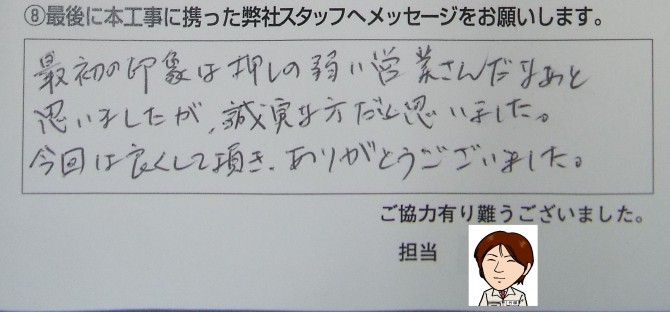 ⑧最後に本工事に携った弊社スタッフへメッセージをお願いします。
最初の印象は押しの弱い営業さんだなぁと
思いましたが、誠実な方だと思いました。
今回は良くして頂き、ありがとうございました。
ご協力有り難うございました。
担当